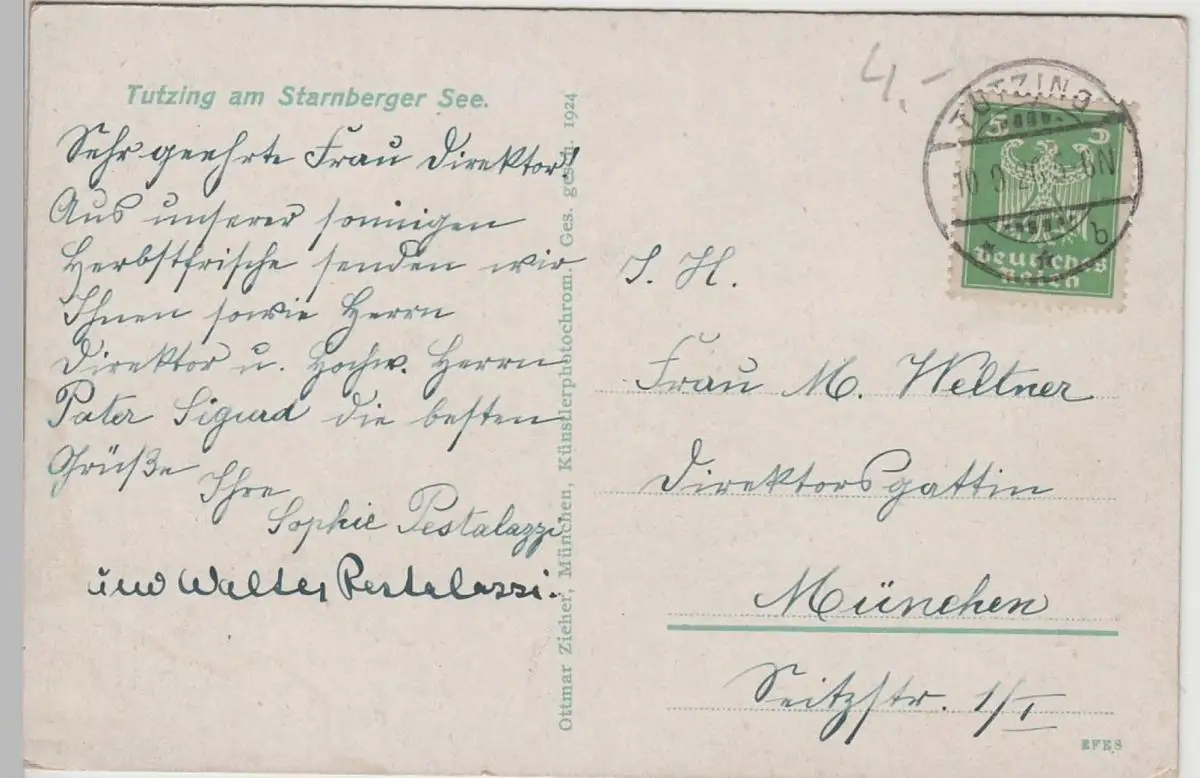 Tutzing am Starnberger See.
Sehr geehrte Frau Direktor!
Aus unserer sonnigen
Herbstfrische senden wir
Ihnen sowie Herrn
Direktor u. Hochw. Herrn
Pater Sigurd die besten
Grüße
Ihre
Sophie Pestalazzi
und Walter Pestalazzi.
Ottmar Zieher, München, Künstlerphotochrom. Ges. gesch. 1924
4.-
TUTZING
5 5
b
Deutsches
Reich
S. H.
Frau M. Weltner
Direktorsgattin
München
Seitzstr. 1/I
EFES